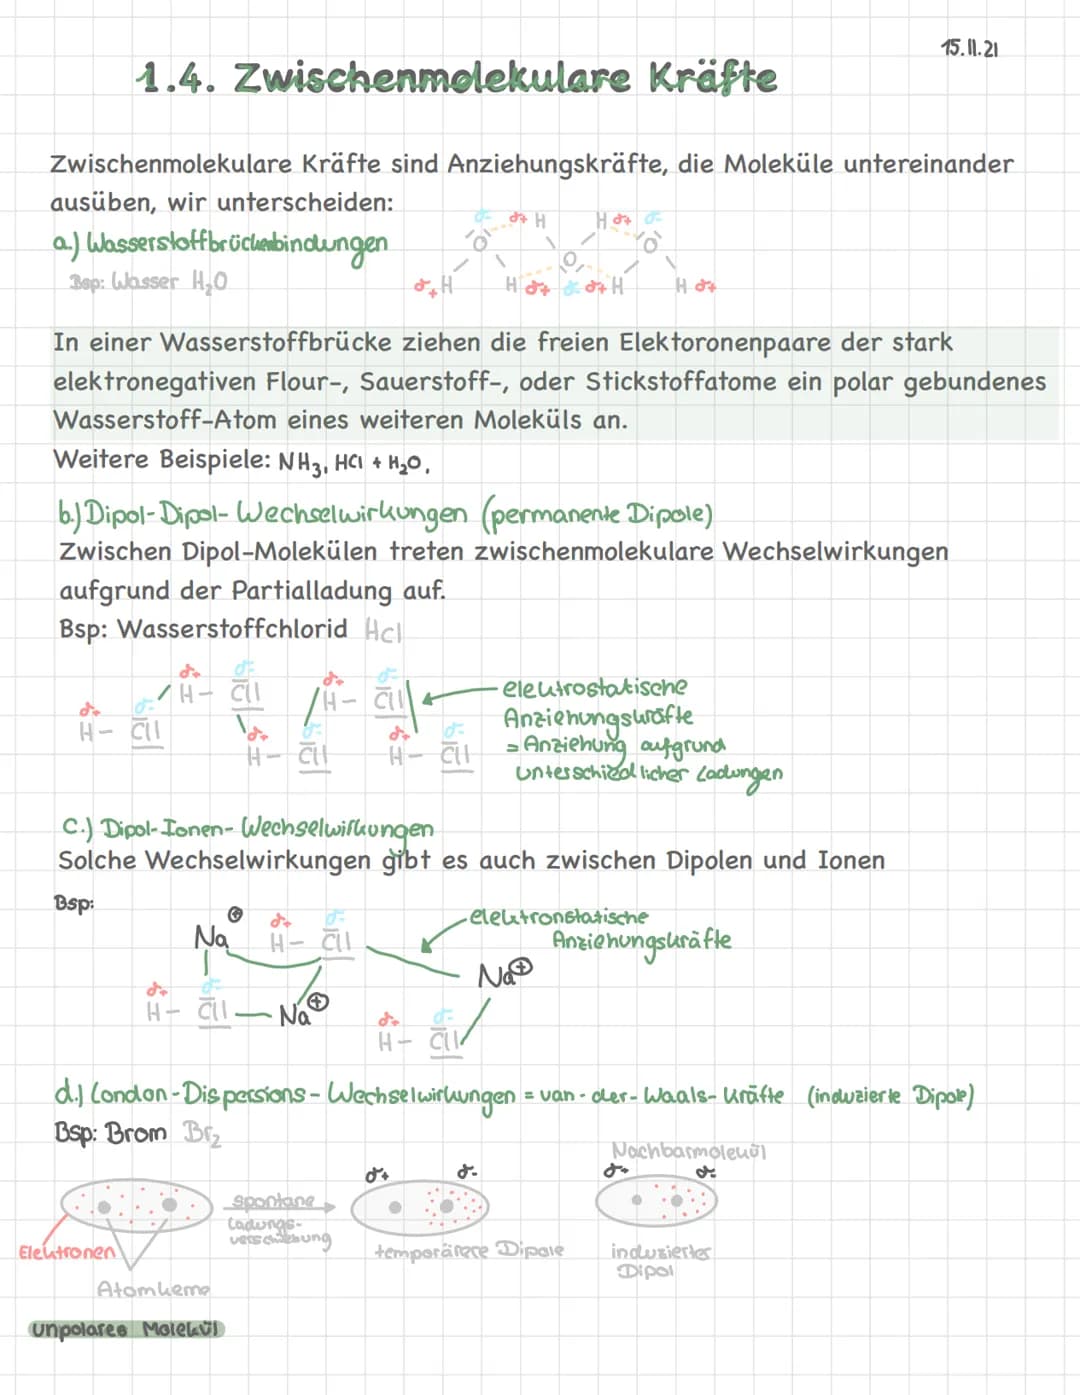 15.11.21
1.4. Zwischenmolekulare Kräfte
Zwischenmolekulare Kräfte sind Anziehungskräfte, die Moleküle untereinander
ausüben, wir unterscheiden:
a.) Wasserstoffbrückenbindungen
Bsp: Wasser H₂O
δ- δ+ H H δ+ δ-
O O O
δ+ H H δ+ δ- δ+ H H δ+
In einer Wasserstoffbrücke ziehen die freien Elektoronenpaare der stark
elektronegativen Flour-, Sauerstoff-, oder Stickstoffatome ein polar gebundenes
Wasserstoff-Atom eines weiteren Moleküls an.
Weitere Beispiele: NH₃, HCl + H₂O,
b.) Dipol-Dipol-Wechselwirkungen (permanente Dipole)
Zwischen Dipol-Molekülen treten zwischenmolekulare Wechselwirkungen
aufgrund der Partialladung auf.
Bsp: Wasserstoffchlorid Hcl
δ+ δ- δ+ δ-
H - Cl H - Cl
δ+ δ-
H - Cl
δ+ δ- δ+ δ-
H - Cl H - Cl
elektrostatische
Anziehungskräfte
= Anziehung aufgrund
unterschiedlicher Ladungen
C.) Dipol-Ionen-Wechselwirkungen
Solche Wechselwirkungen gibt es auch zwischen Dipolen und Ionen
Bsp:
Na⊕ δ+ δ- H - Cl
elektronstatische
Anziehungskräfte
Na⊕
δ+ δ- H - Cl Na⊕
δ+ δ- H - Cl
d.) London-Dispersions-Wechselwirkungen = van-der-Waals-Kräfte (induzierte Dipole)
Bsp: Brom Br₂
Nachbarmolekül
δ+ δ- δ+ δ-
spontane
Ladungs-
verschiebung
Elektronen
temporärere Dipole
induzierter
Dipol
Atomkerne
unpolares Molekül